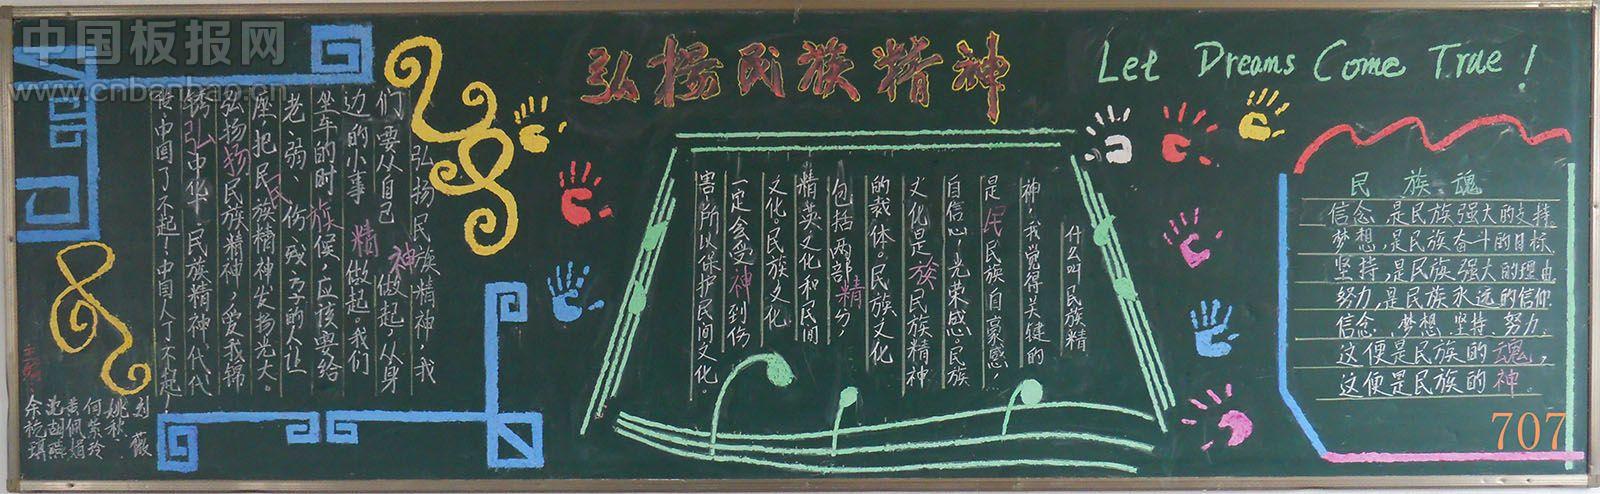 中国板报网
www.cnbanbao.cn
弘扬民族精神
Let Dreams Come True!
弘扬民族精神，我
们要从自己神做起，从身
边的小事精做起，我们
坐车的时族候，应该要给
老弱、伤残之的人让
座把民族精神发扬光大。
弘扬扬民族精神，爱我锦
锈弘中华，民族精神代代
中国了不起！中国人了不起！
什么叫民族精
神，我觉得关键的
是民民族自豪感，
自信心！光荣感。民族
文化是族民族精神
的载体。民族文化
包括两部精分，
精英文化和民间
文化。民族文化
一定会受神到伤
害所以保护民间文化。
民族魂
信念，是民族强大的支持，
梦想，是民族奋斗的目标，
坚持，是民族强大的理由
努力，是民族永远的信仰
信念、梦想、坚持、努力，
这便是民族的魂，
这便是民族的神。
707
刘薇
姚秋
何紫玲
黄佩娟